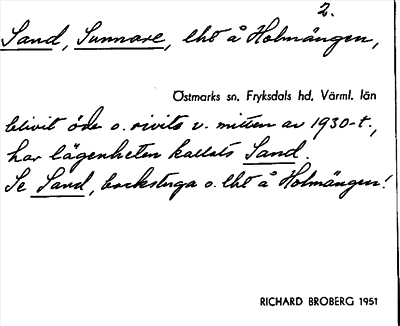 2.
Sand, Sunnare, lht å Holmängen,
Östmarks sn, Fryksdals hd, Värml. län
blivit öde o. rivits v. mitten av 1930-t.,
har lägenheten kallats Sand.
Se Sand, backstuga o. lht å Holmängen!
RICHARD BROBERG 1951